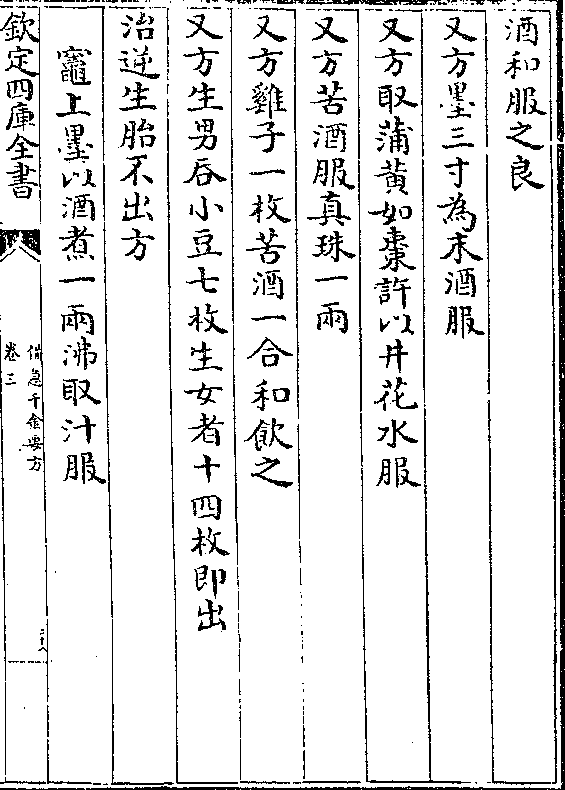 酒和服之良
又方墨三寸為末酒服
又方取蒲黄如棗許以井花水服
又方苦酒服真珠一兩
又方雞子一枚苦酒一合和飲之
又方生男吞小豆七枚生女者十四枚即出
治逆生胎不出方
竈上墨以酒煮一兩沸取汁服
欽定四庫全書
備急千金要方
卷三